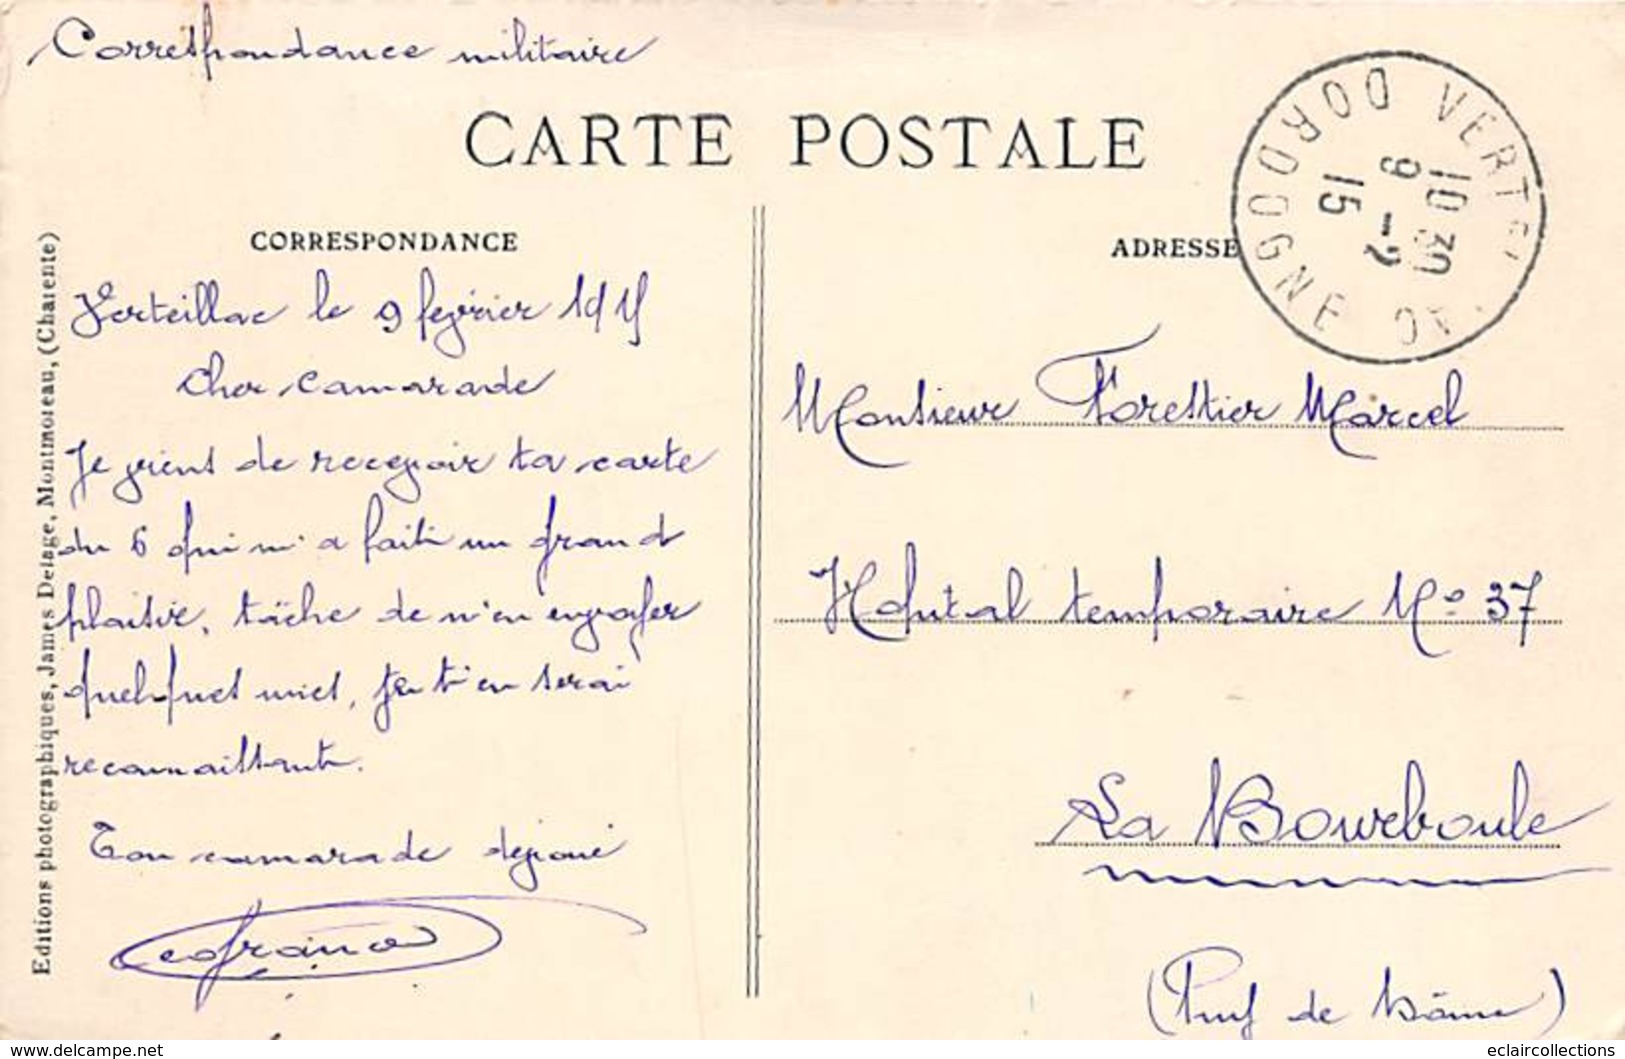 Correspondance militaire
CARTE POSTALE
VERTEILLAC
DORDOGNE
10 30
9 -2
15
CORRESPONDANCE
Verteillac le 9 fevrier 1915
Cher Camarade
Je viens de recevoir ta carte
du 6 qui m'a fait un grand
plaisir, tâche de m'en envoyer
quelques unes, je t'en serai
reconnaissant.
Ton camarade dévoué
ADRESSE
Monsieur Forestier Marcel
Hôpital temporaire No 37
La Bourboule
(Puy de Dôme)
Editions photographiques, James Delage, Montmoreau, (Charente)
www.delcampe.net
eclaircollections